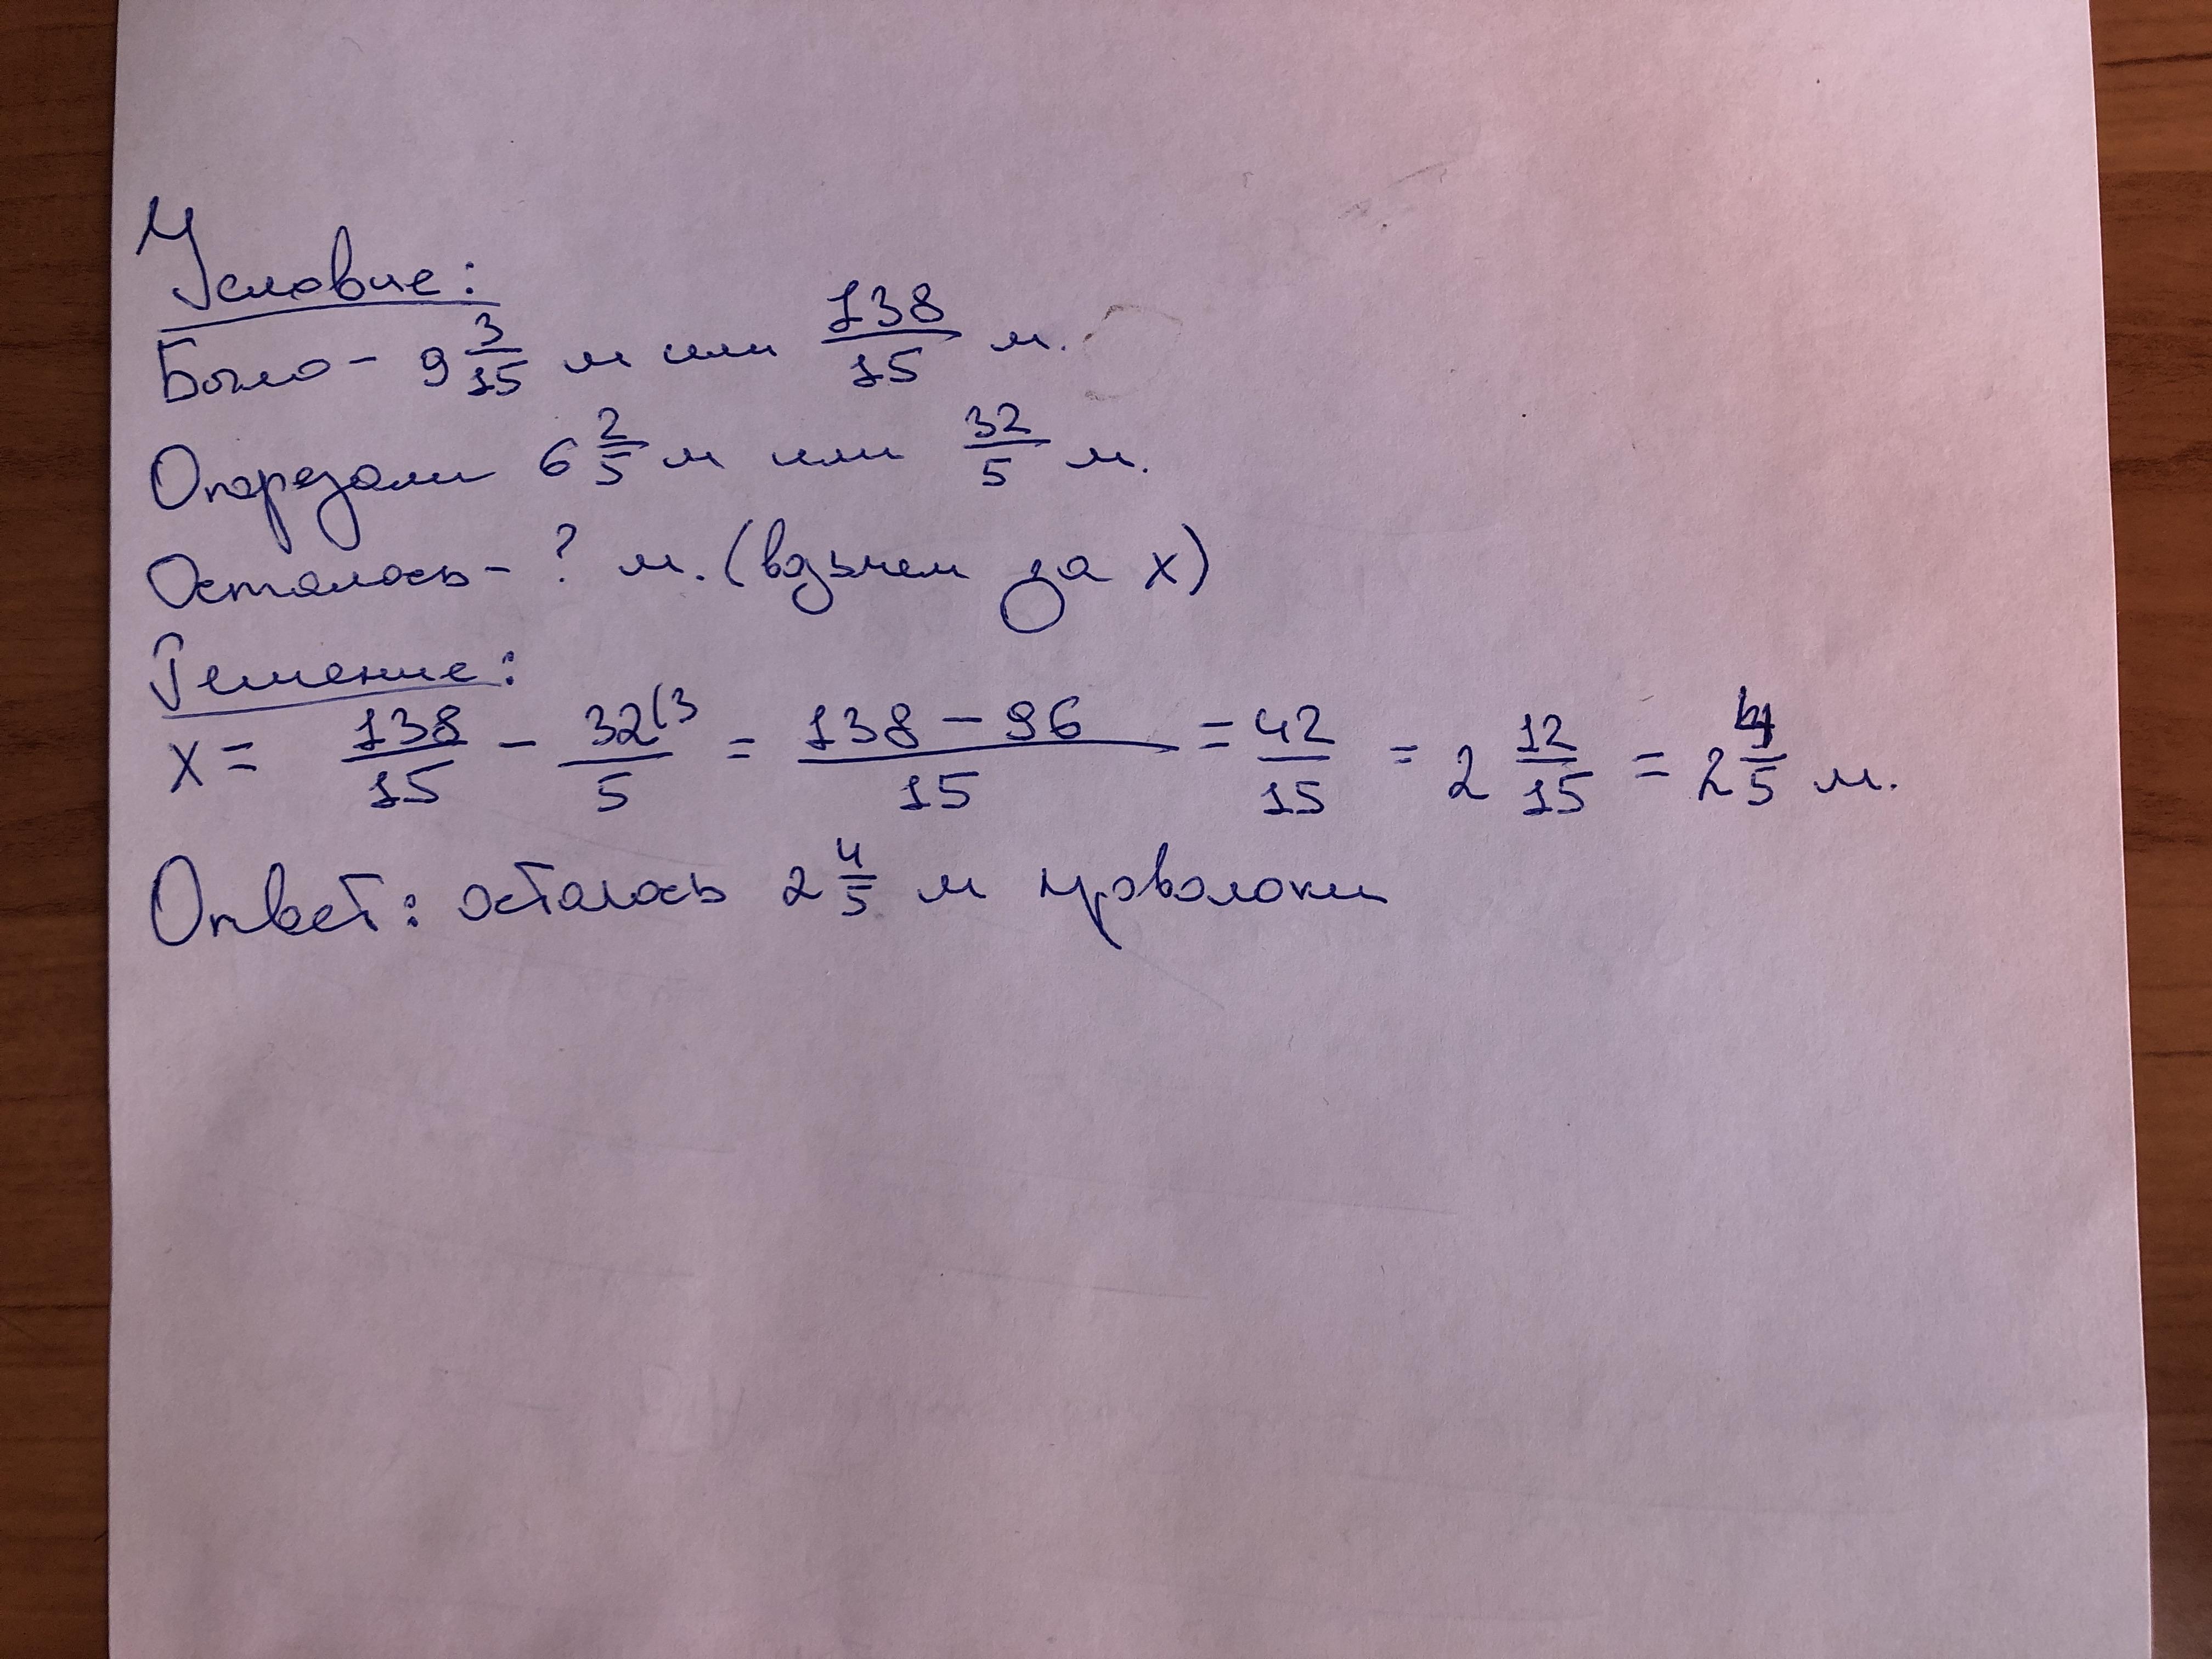 Условие:
Было - 9 3/15 м или 138/15 м.
Отрезали 6 2/5 м или 32/5 м.
Осталось - ? м. (возьмем за х)
Решение:
х = 138/15 - 32(3/5 = 138 - 96/15 = 42/15 = 2 12/15 = 2 4/5 м.
Ответ: осталось 2 4/5 м проволоки